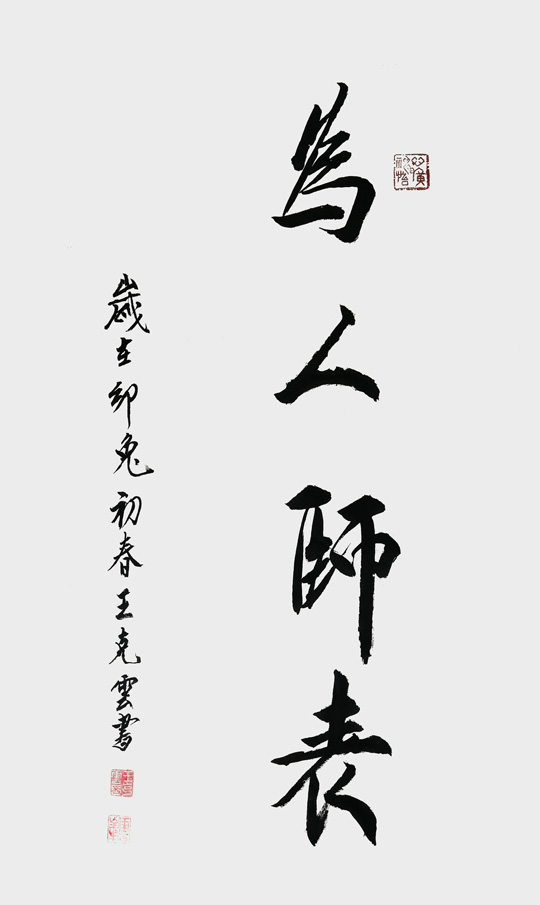 為人師表
歲在卯兔初春王克雲書